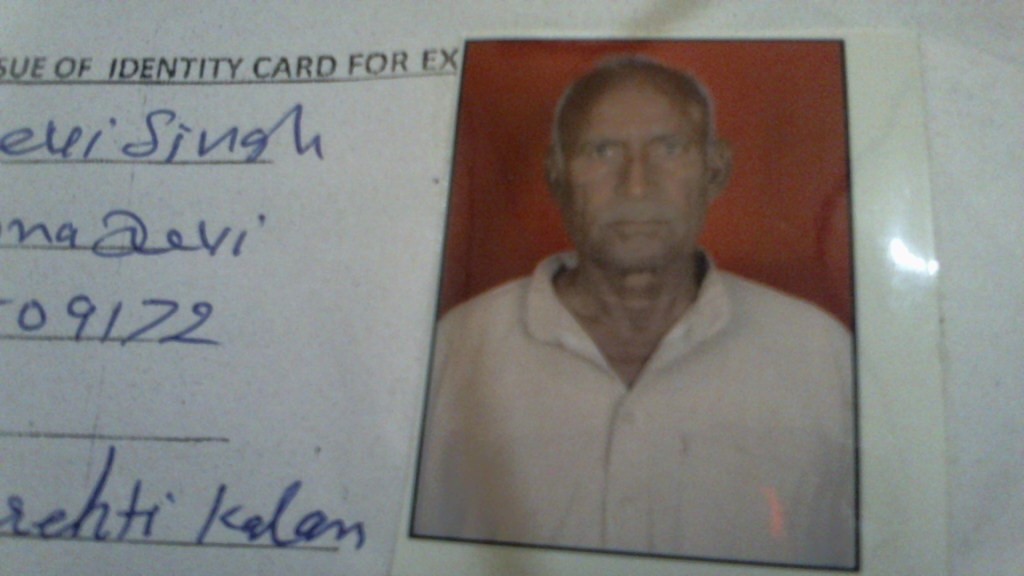 SUE OF IDENTITY CARD FOR EX
evi Singh
na Devi
509172
rehti Kalan